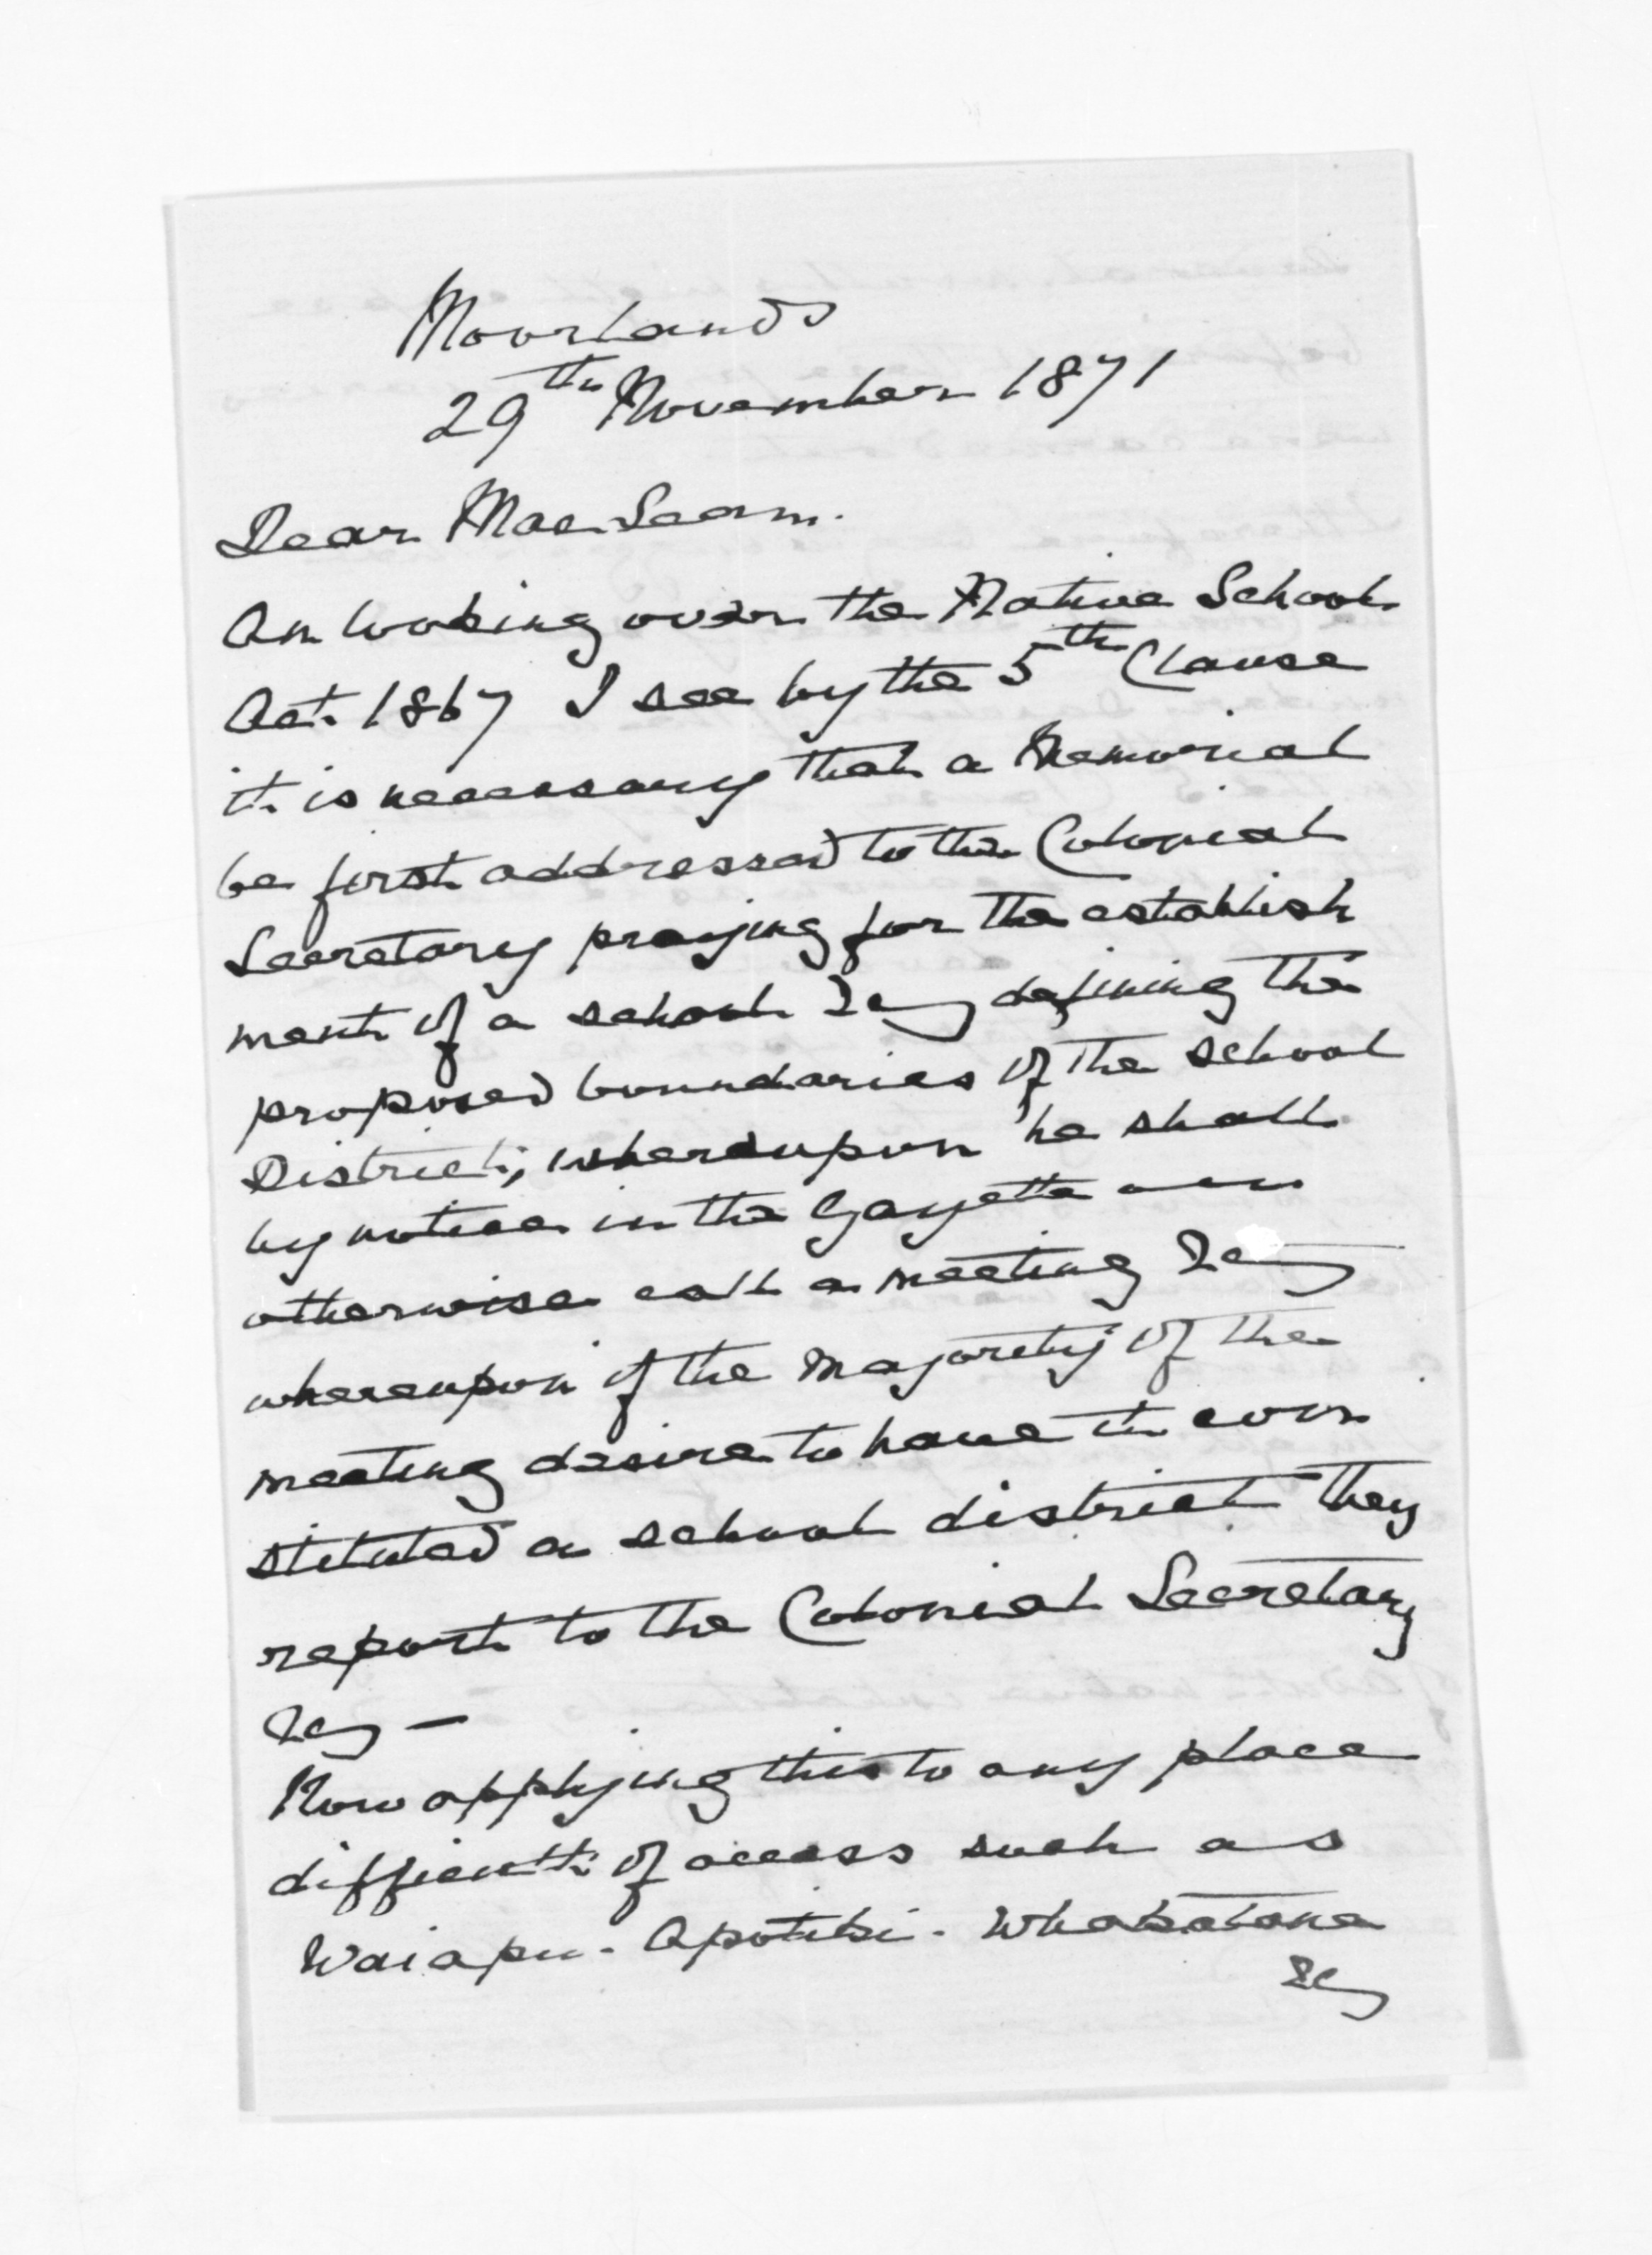 Moorlands
29th November 1871
Dear MacLean.
On looking over the Native School
Act 1867 I see by the 5th Clause
it is necessary that a Memorial
be first addressed to the Colonial
Secretary praying for the establish
ment of a school &c defining the
proposed boundaries of the school
District, whereupon he shall
by notice in the Gazette or
otherwise call a meeting &c
whereupon if the majority of the
meeting desire to have it con
stituted a school district they
report to the Colonial Secretary
&c —
Now applying this to any place
difficult of access such as
Waiapu. Opotiki. Whakatane
&c